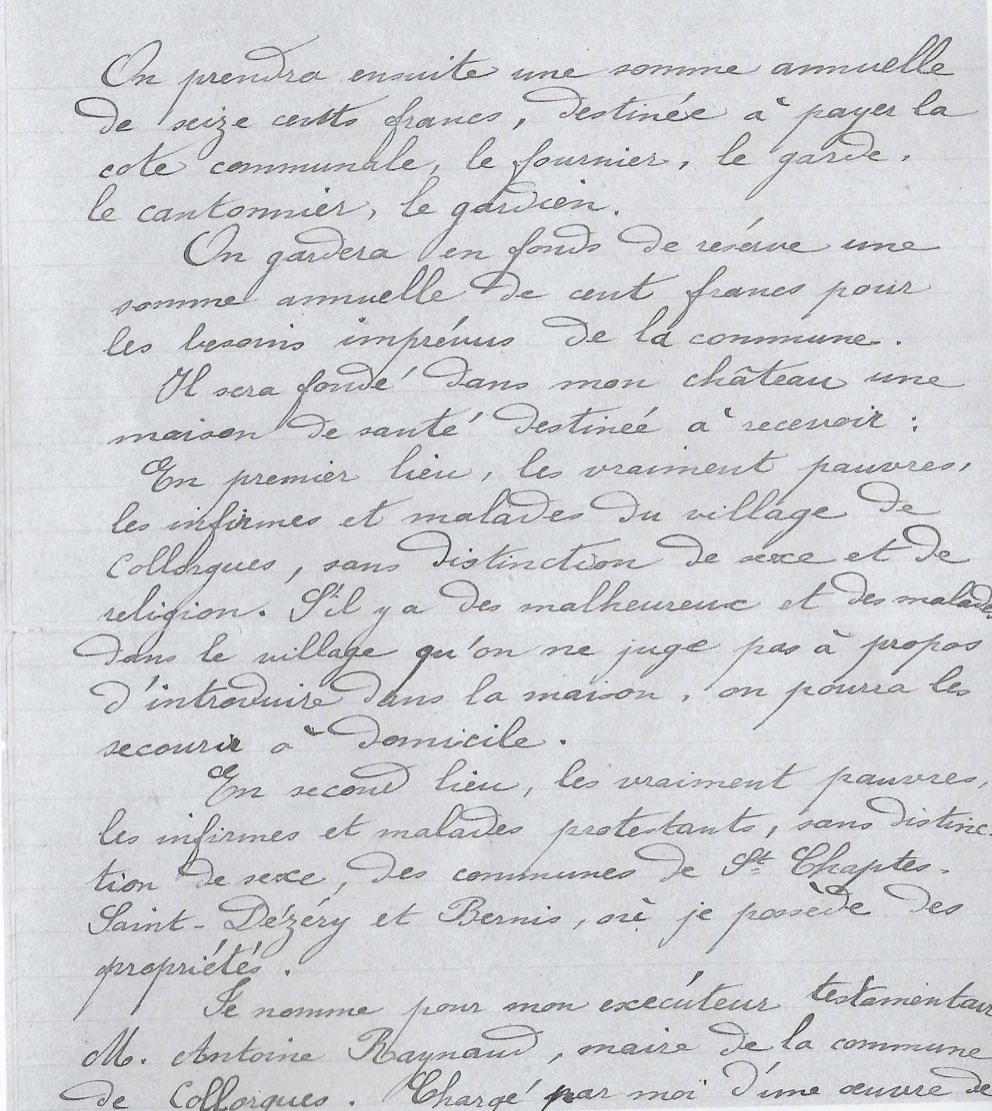 On prendra ensuite une somme annuelle
de seize cents francs, destinée à payer la
cote communale, le fournier, le garde,
le cantonnier, le gardien.
On gardera en fonds de réserve une
somme annuelle de cent francs pour
les besoins imprévus de la commune.
Il sera fondé dans mon château une
maison de santé destinée à recevoir :
En premier lieu, les vraiment pauvres,
les infirmes et malades du village de
Collorgues, sans distinction de sexe et de
religion. S'il y a des malheureux et des malades
dans le village qu'on ne juge pas à propos
d'introduire dans la maison, on pourra les
secourir à domicile.
En second lieu, les vraiment pauvres,
les infirmes et malades protestants, sans distinc-
tion de sexe, des communes de St Chaptes-
Saint-Dézéry et Bernis, où je possède des
propriétés.
Je nomme pour mon exécuteur testamentair
M. Antoine Raynaud, maire de la commune
de Collorgues. Chargé par moi d'une œuvre de